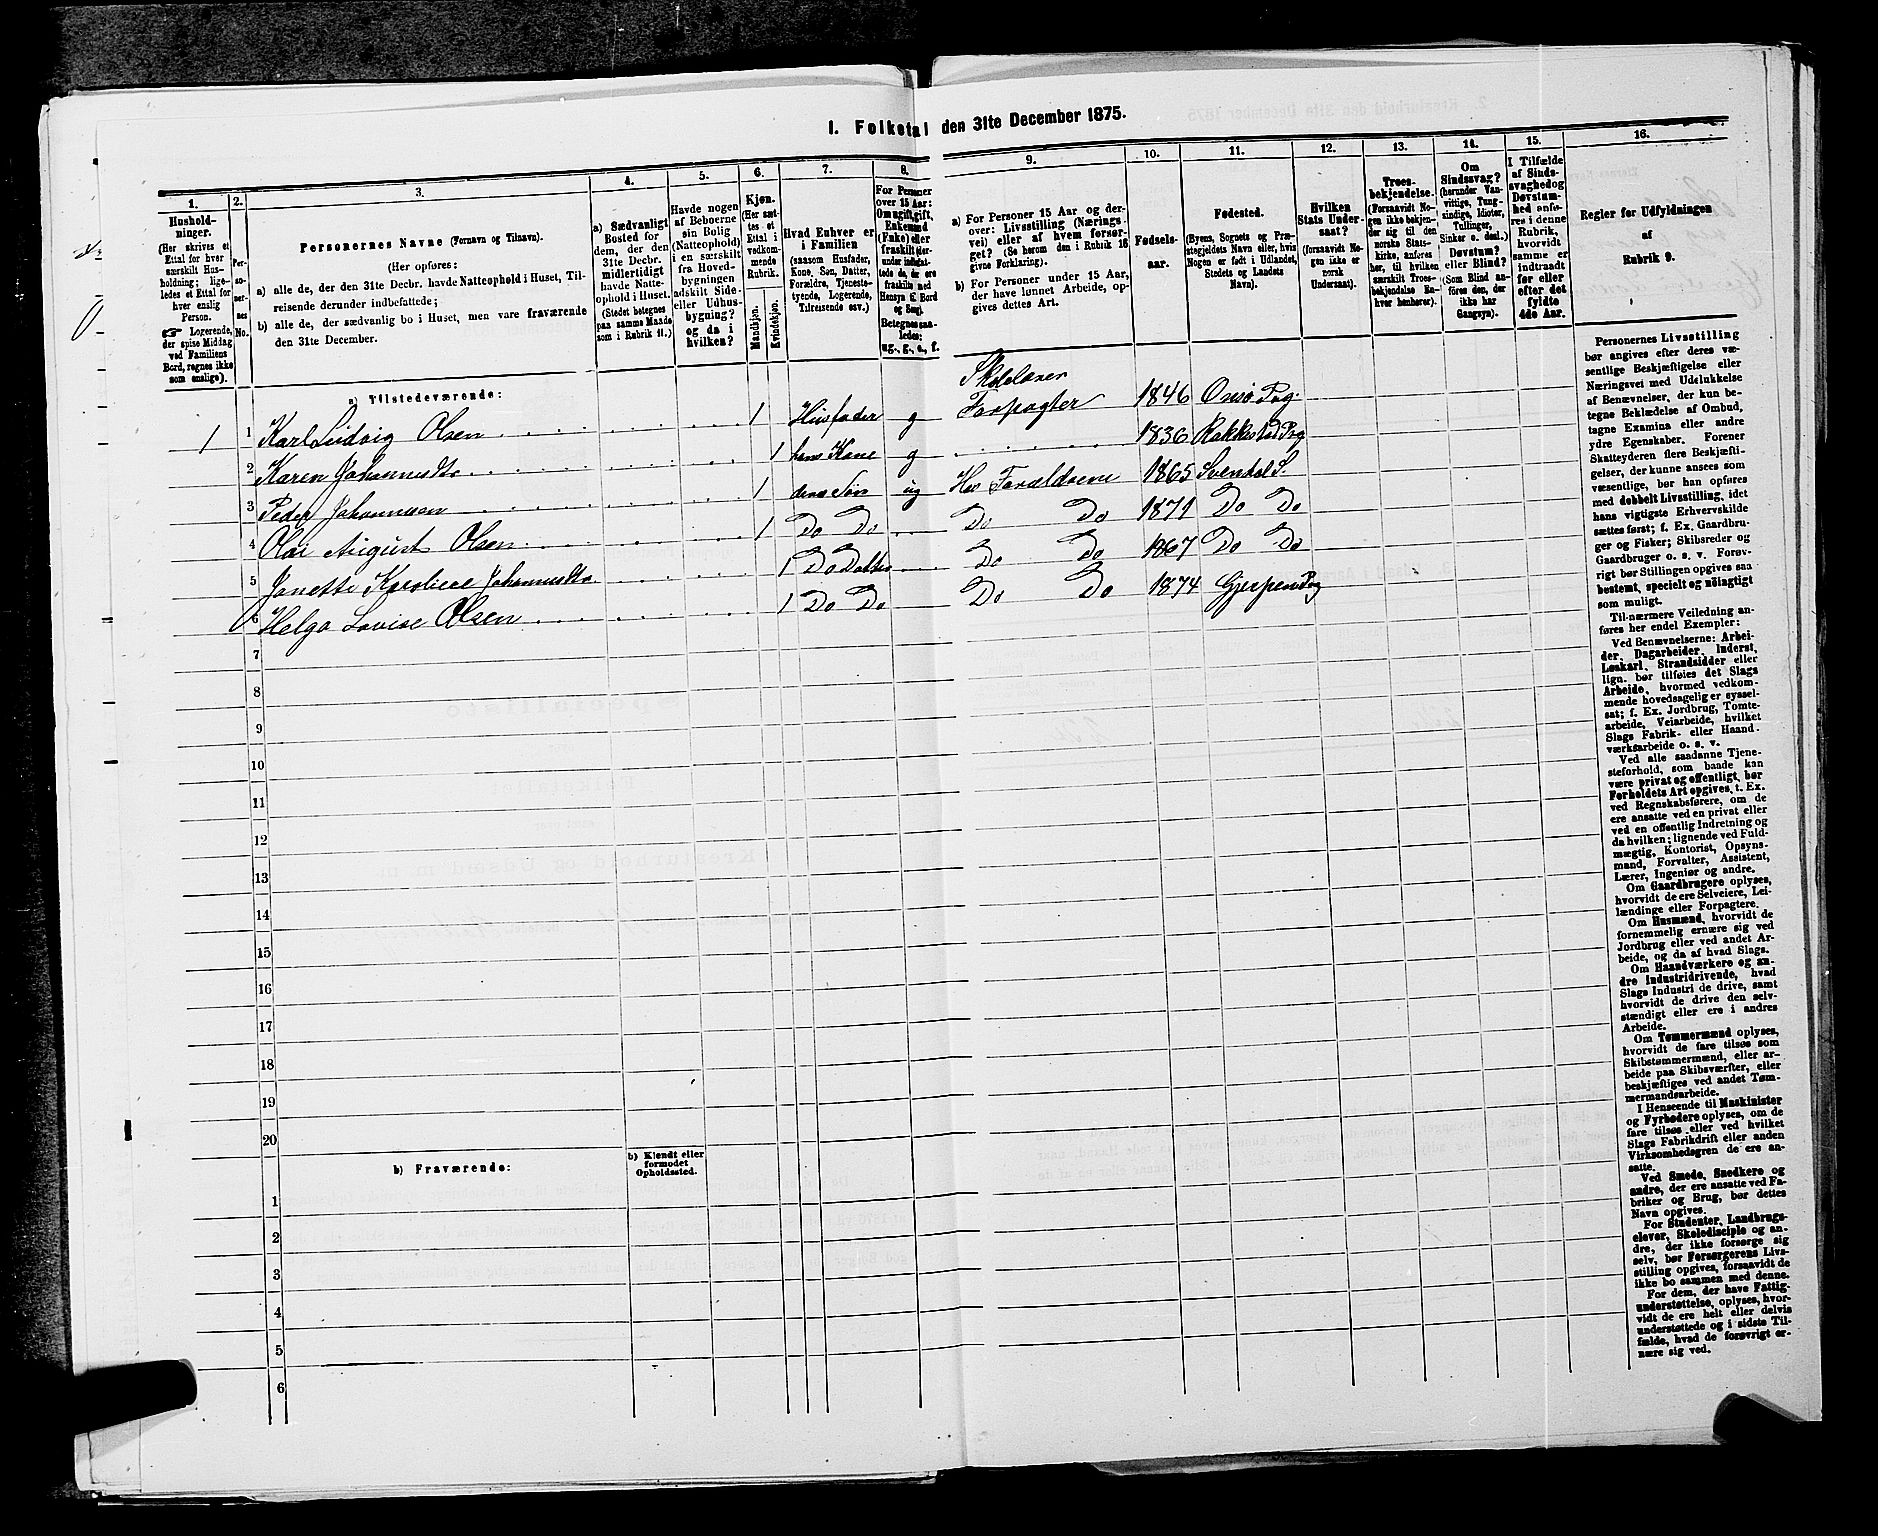 I. Folketal den 31te December 1875.
1. 2. 3. 4. 5. 6. 7. 8. 9. 10. 11. 12. 13. 14. 15. 16.
Hushold-
ninger.
(Her skrives et
Ettal for hver
særskilt Hus-
holdning; lige-
ledes et Ettal for
hver enslig
Person.
☞ Logerende,
der spise Middag
ved Familiens
Bord, regnes ikke
som enslige).
Per-
so-
ner-
nes
No.
Personernes Navne (Fornavn og Tilnavn).
(Her opføres:
a) alle de, der den 31te Decbr. havde Natteophold i Huset, Til-
reisende derunder indbefattede;
b) alle de, der sædvanlig bo i Huset, men vare fraværende
den 31te December.
a) Sædvanligt
Bosted for
dem, der den
31te Decbr.
midlertidigt
havde Natte-
ophold i Huset.
(Stedet betegnes
paa samme Maade
som i Rubrik 11.)
Havde nogen
af Beboerne
sin Bolig
(Natteophold)
i en særskilt
fra Hoved-
bygningen
adskilt Side-
eller Udhus-
bygning?
og da i
hvilken?
Kjøn.
(Her sæt-
tes et
Ettal i
vedkom-
mende
Rubrik.
Mandkjøn.
Kvindekjøn.
Hvad Enhver er
i Familien
(saasom Husfader,
Kone, Søn, Datter,
Forældre, Tjeneste-
tyende, Logerende,
Tilreisende osv.)
For Personer
over 15 Aar:
Om ugift, gift,
Enkemand
(Enke) eller
fraskilt (der-
under indbefat-
tede de, der ere
fraskilte med
Hensyn t. Bord
og Seng).
Betegnes saa-
ledes:
ug., g., e., f.
a) For Personer 15 Aar og der-
over: Livsstilling (Nærings-
vei) eller af hvem forsør-
get? (Se herom den i Rubrik 16
givne Forklaring).
b) For Personer under 15 Aar,
der have lønnet Arbeide, op-
gives dettes Art.
Fødsels-
aar.
Fødested.
(Byens, Sognets og Præ-
stegjeldets Navn eller, hvis
Nogen er født i Udlandet,
Stedets og Landets
Navn).
Hvilken
Stats Under-
saat?
(forsaavidt No-
gen ikke er
norsk
Undersaat).
Troes-
bekjendelse.
(Forsaavidt No-
gen ikke bekjen-
der sig til den
norske Stats-
kirke, anføres
her, til hvilken
særskilt Troes-
bekjendelse En-
hver henhører).
Om
Sindssvag?
(herunder Van-
vittige, Tung-
sindige, Idioter,
Tullinger,
Sinker o. desl.)
Døvstum?
eller Blind?
(Som Blind an-
føres den, der
ikke har
Gangsyn).
I Tilfælde
af Sinds-
svaghed og
Døvstum-
hed anfø-
res i denne
Rubrik,
hvorvidt
samme er
indtraadt
før eller
efter det
fyldte
4de Aar.
Regler for Udfyldningen
af
Rubrik 9.
a) Tilstedeværende:
1 1 Karl Ludvig Olsen 1 Husfader g Skolelærer Forpagter 1846 Onsø Prg.
2 Karen Johannesdtr 1 hans Kone g 1836 Rakkestad Prg
3 Peder Johannesen 1 deres Søn ug Hos Forældrene 1865 Svendal S.
4 Olai August Olsen 1 Do Do Do Do 1871 Do Do
5 Janette Karoline Johannesdtr 1 Do Datter Do Do 1867 Do Do
6 Helga Lovise Olsen 1 Do Do Do Do 1874 Gjerpen Prg
7
8
9
10
11
12
13
14
15
16
17
18
19
20
b) Fraværende:
b) Kjendt eller
formodet
Opholdssted.
1
2
3
4
5
6
Personernes Livsstilling
bør angives efter deres væ-
sentlige Beskjæftigelse eller
Næringsvei med Udelukkelse
af Benævnelser, der kun be-
tegne Beklædelse af Ombud,
tagne Examina eller andre
ydre Egenskaber. Forener
Skatteyderen flere Beskjæfti-
gelser, der kunne ansees som
væsentlige, bør han opføres
med dobbelt Livsstilling, idet
hans vigtigste Erhvervskilde
sættes først; f. Ex. Gaardbru-
ger og Fisker; Skibsreder og
Gaardbruger o. s. v. Forøv-
rigt bør Stillingen opgives saa
bestemt, specielt og nöiagtigt
som muligt.
Til nærmere Veiledning an-
føres her endel Exempler:
Ved Benævnelserne: Arbei-
der, Dagarbeider, Inderst,
Løskarl, Strandsidder eller
lign. bør tilføies det Slags
Arbeide, hvormed vedkom-
mende hovedsagelig er syssel-
sat; f. Ex. Jordbrug, Tomte-
arbeide, Veiarbeide, hvilket
Slags Fabrik- eller Haand-
værksarbeide o. s. v.
Ved alle saadanne Tjene-
steforhold, som baade kan
være privat og offentligt, bør
Forholdets Art opgives, t. Ex.
ved Regnskabsførere, om de
ere ansatte ved en privat eller
ved en offentlig Indretning og
da hvilken; lignende ved Fuld-
mægtig, Kontorist, Opsyns-
mand, Forvalter, Assistent,
Lærer, Ingeniør og andre.
Om Gaardbrugere oplyses,
hvorvidt de ere Selveiere, Lei-
lændinge eller Forpagtere.
Om Husmænd, hvorvidt de
fornemmelig ernære sig ved
Jordbrug eller ved andet Ar-
beide, og da af hvad Slags.
Om Haandværkere og an-
dre Industridrivende, hvad
Slags Industri de drive, samt
hvorvidt de drive den selv-
stændigt eller ere i andres
Arbeide.
Om Tømmermænd oplyses,
hvorvidt de fare tilsøs som
Skibstømmermænd, eller ar-
beide paa Skibsværfter, eller
beskjæftiges ved andet Tøm-
mermandsarbeide.
I Henseende til Maskinister
og Fyrbødere oplyses, om de
fare tilsøs eller ved hvilket
Slags Fabrikdrift eller anden
Virksomhedsgren de ere an-
satte.
Ved Smede, Snedkere og
andre, der ere ansatte ved Fa-
briker og Brug, bør dettes
Navn opgives.
For Studenter, Landbrugs-
elever, Skoledisciple og an-
dre, der ikke forsørge sig
selv, bør Forsørgerens Livs-
stilling opgives, forsaavidt de
ikke bo sammen med denne.
For dem, der have Fattig-
understøttelse, oplyses, hvor-
vidt de ere helt eller delvis
understøttede og i sidste Til-
fælde, hvad de forøvrigt er-
nære sig ved.